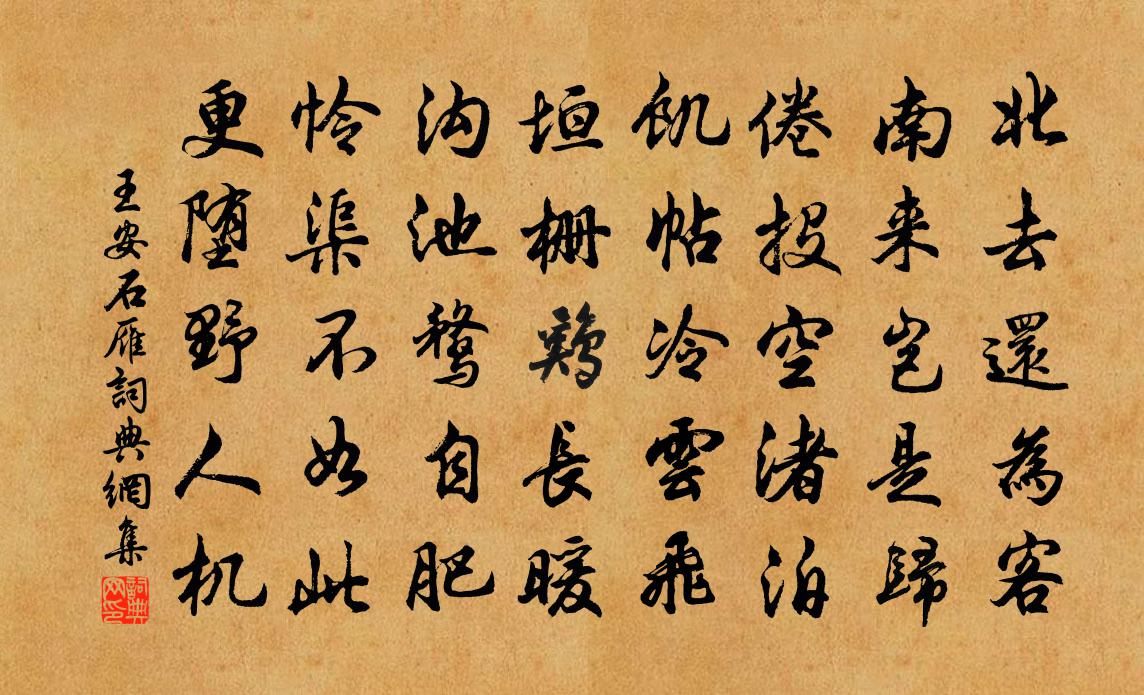 北去還為客
南来岂是歸
倦投空渚泊
飢帖冷雲飛
垣栅鷄長暖
沟池鶩自肥
怜渠不如此
更堕野人机
王安石雁詞典網集
詞典网印